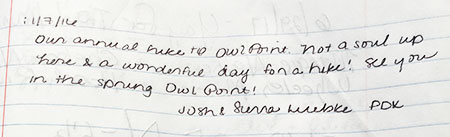 11/7/16
Our annual hike to Owl Point. Not a soul up
here & a wonderful day for a hike! See you
in the spring Owl Point!
Josh & Sienna PDK